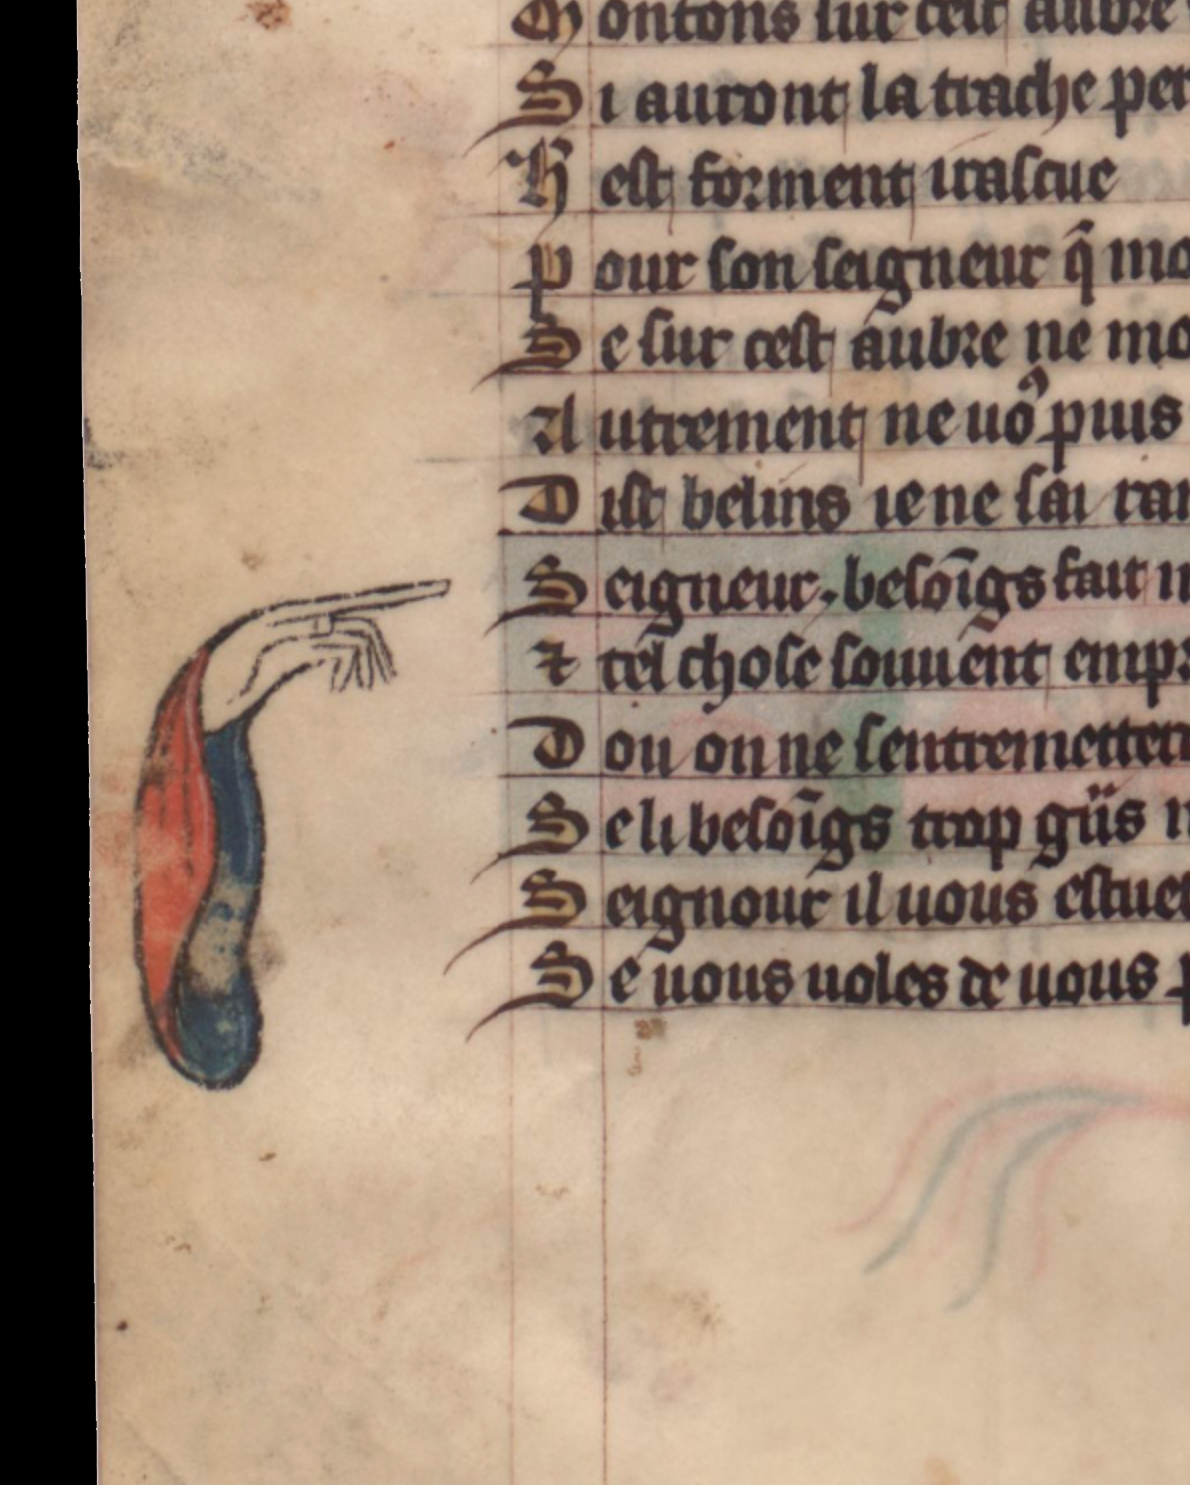 Montons sur cest aubre
Si auront la trache per
H est forment irascue
Pour son seigneur q̃ mo
Se sur cest aubre ne mo
Autrement ne uo⁹ puis
Dist belins ie ne sai ra
Seigneur. besoīgs fait
⁊ tel chose souuent emp
Dou on ne sentremettera
Se li besoīgs trop g̈ris
Seignour il uous estuet
Se uous uoles de uous p